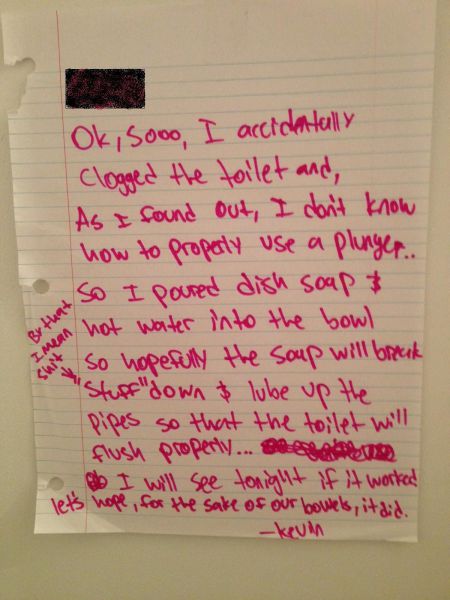 Ok, Sooo, I accidentally
Clogged the toilet and,
As I found out, I don't know
how to properly use a plunger..
So I poured dish soap &
hot water into the bowl
so hopefully the soap will break
"stuff" down & lube up the
pipes so that the toilet will
flush properly...
I will see tonight if it worked
let's hope, for the sake of our bowels, it did.
-Kevin
By that
I mean
shit